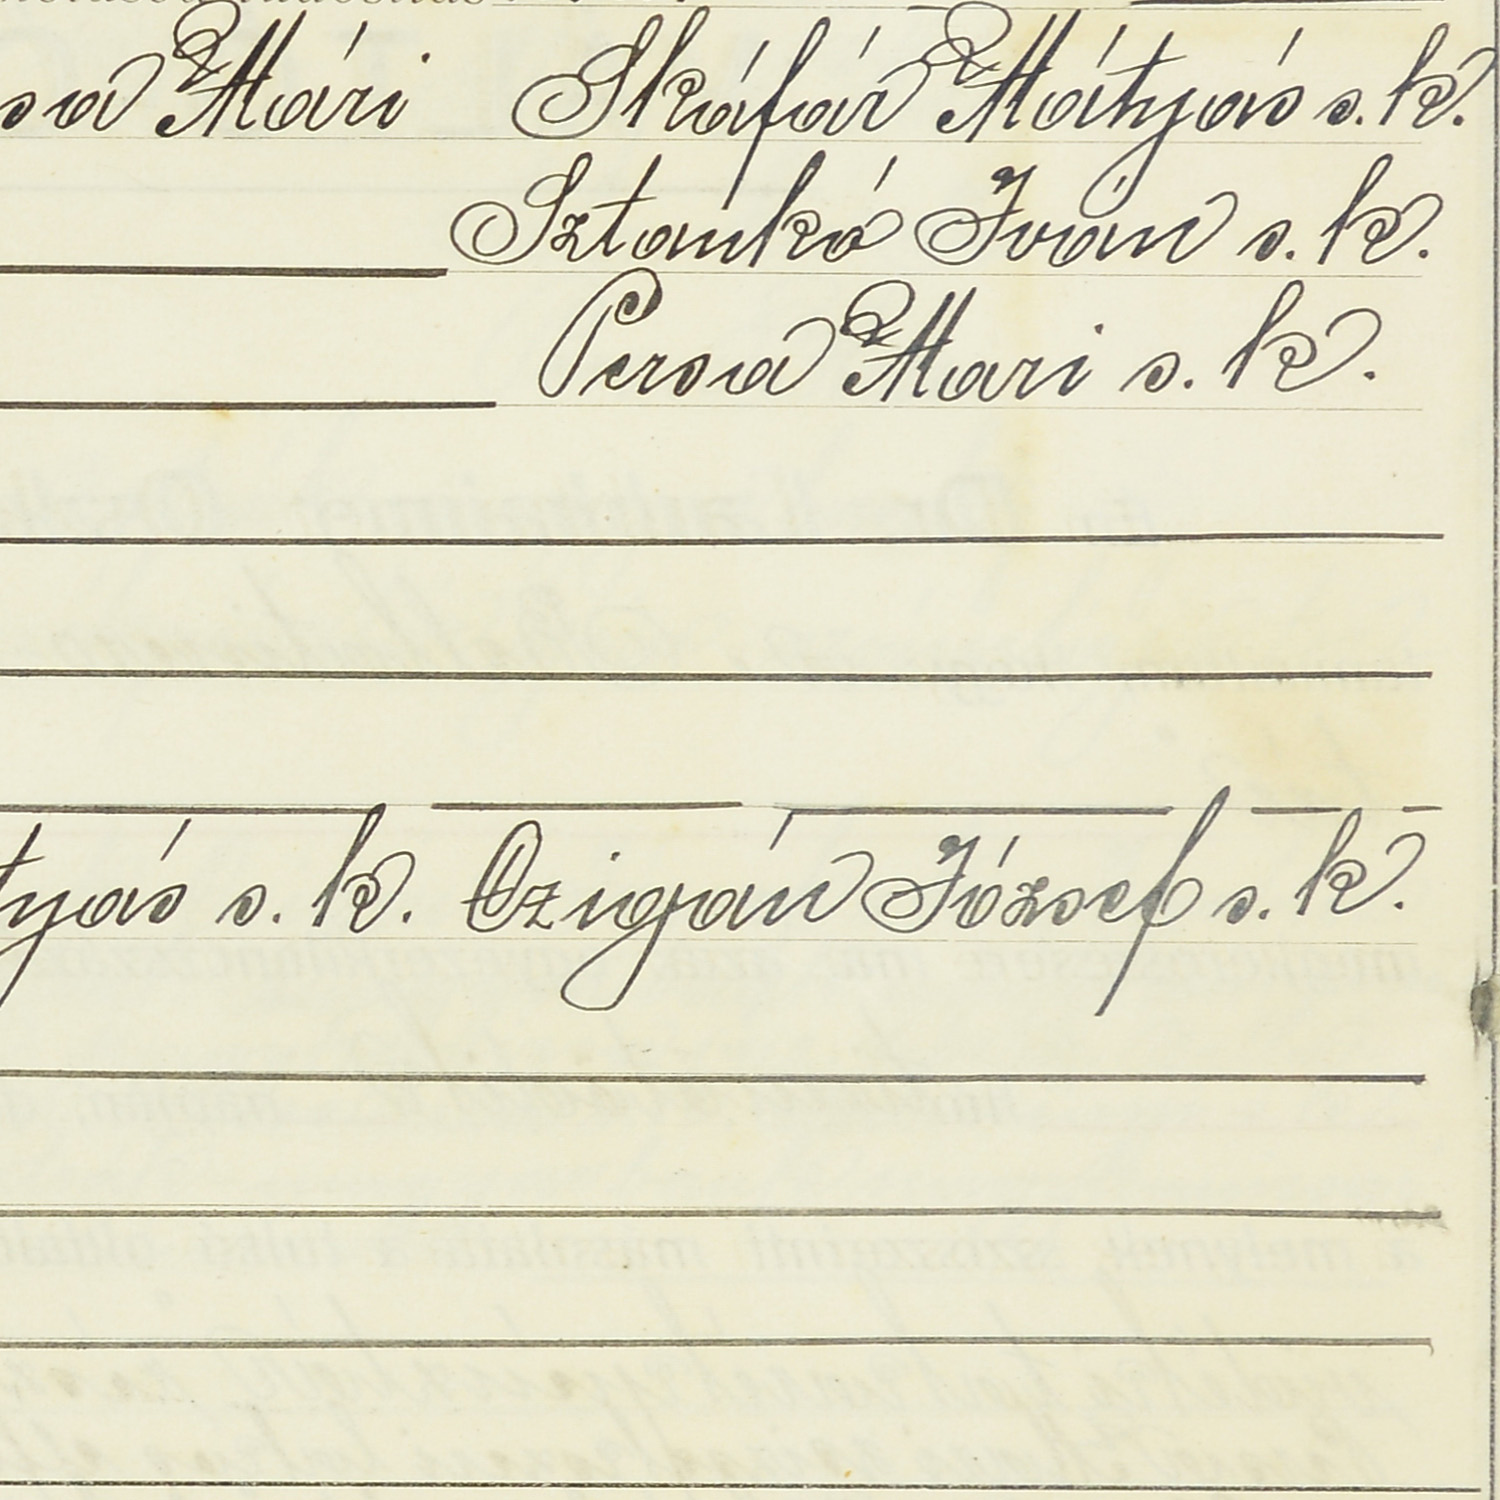 sa Mári Skáfár Mátyás s. k.
Sztankó Iván s. k.
Persa Mari s. k.
tyás s. k. Czigán József s. k.